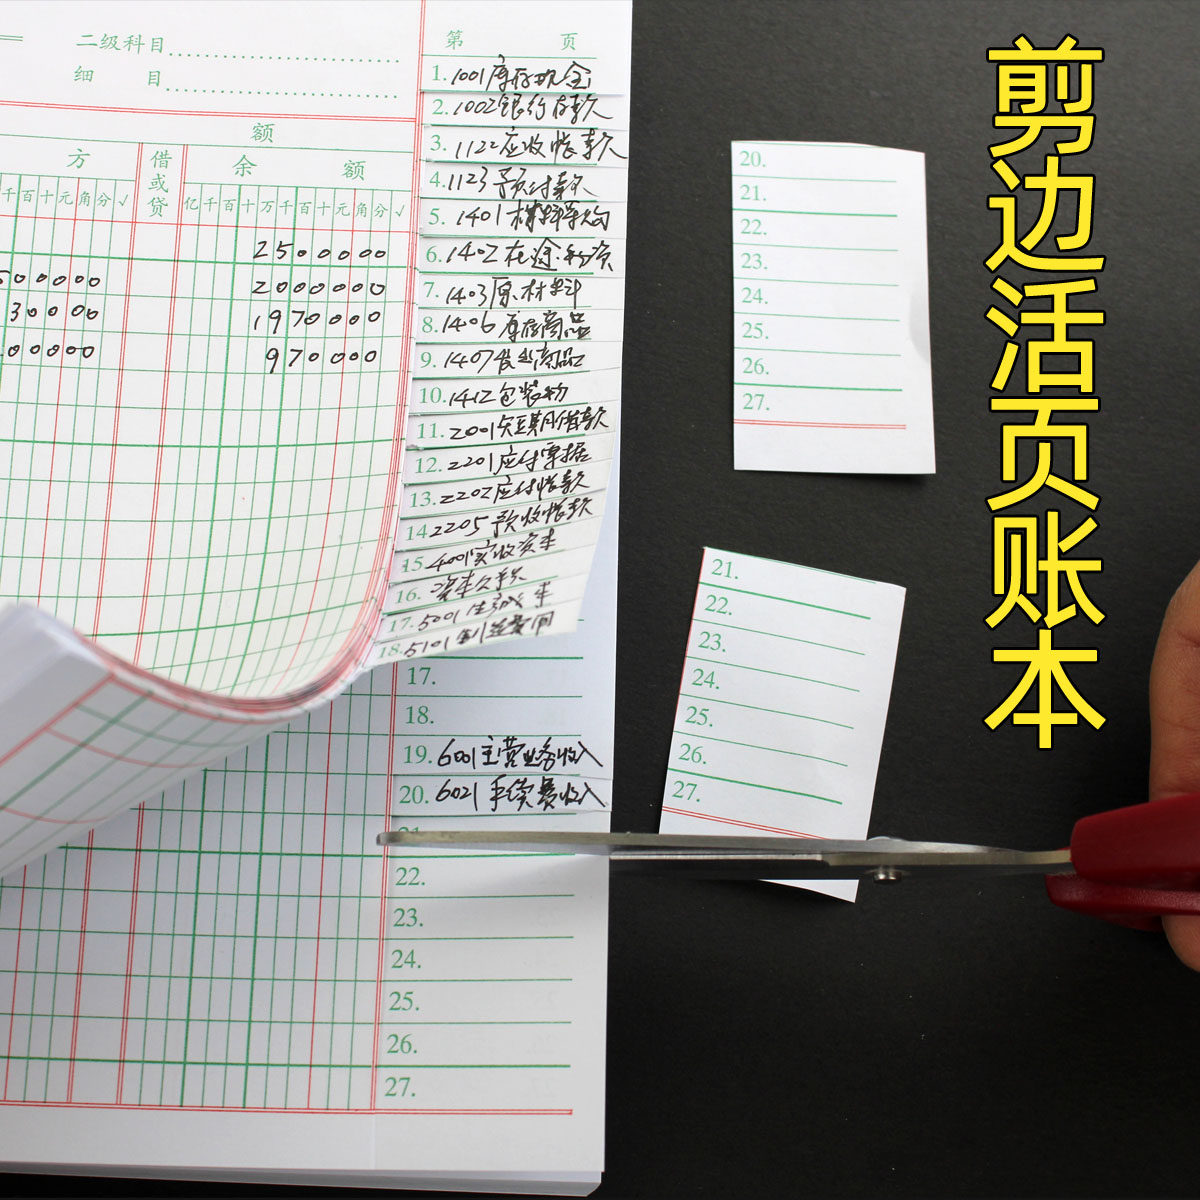 剪边活页账本
二级科目
细 目
第 页
额
方
借或贷
余 额
千百十元角分√
亿千百十万千百十元角分√
2500000
2000000
1970000
970000
00000
30000
00000
1. 1001库存现金
2. 1002银行存款
3. 1122应收帐款
4. 1123预付款
5. 1401材料采购
6. 1402在途物资
7. 1403原材料
8. 1406库存商品
9. 1407发出商品
10. 1412包装物
11. 2001短期借款
12. 2201应付票据
13. 2202应付帐款
14. 2205预收帐款
15. 4001实收资本
16.
17. 5001生产成本
18. 5101制造费用
17.
18.
19. 6001主营业务收入
20. 6021手续费收入
21
22.
23.
24.
25.
26.
27.
20.
21.
22.
23.
24.
25.
26.
27.
21.
22.
23.
24.
25.
26.
27.